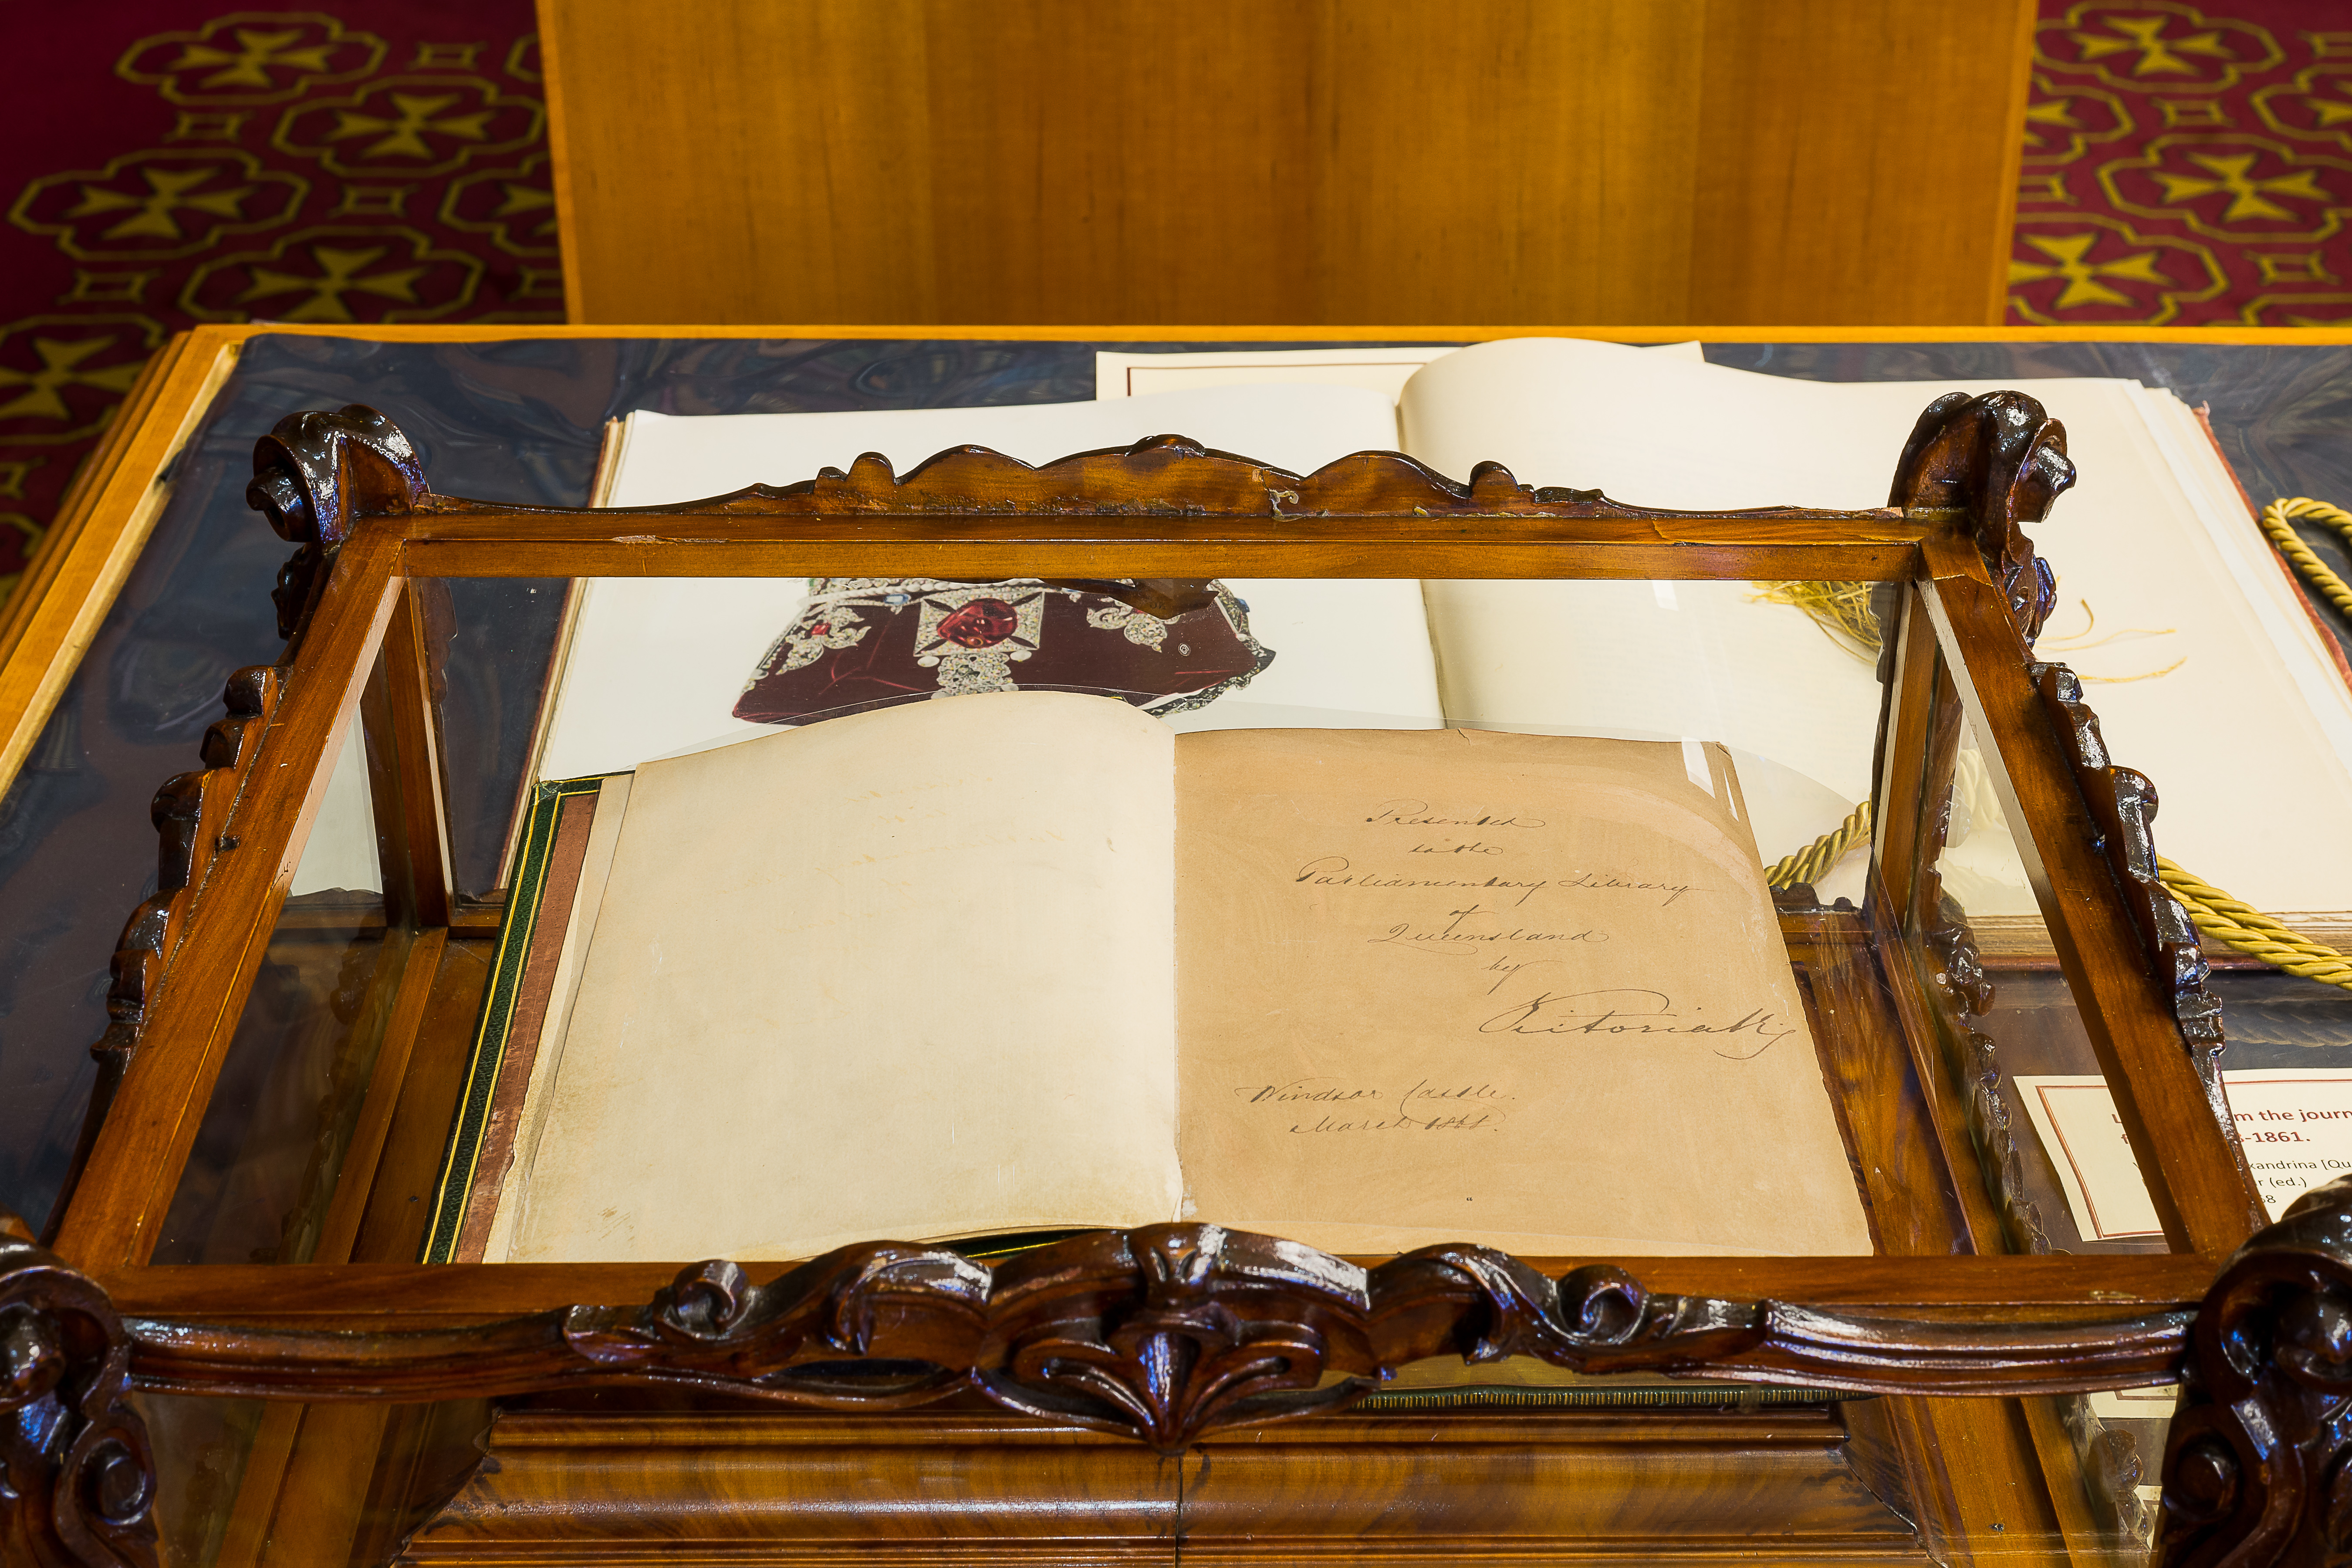 Presented
to the
Parliamentary Library
of
Queensland
by
Victoria R
Windsor Castle.
March
m the journ
-1861.
xandrina [Qu
r (ed.)